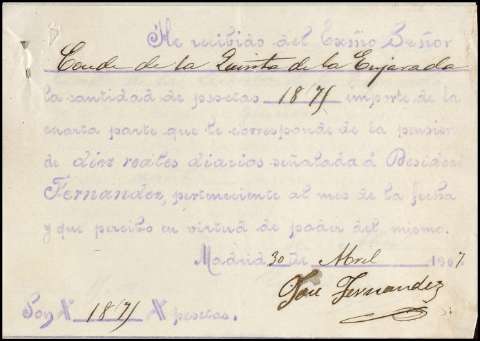 He recibido del Excmo Señor
Conde de la Quinta de la Enjarada
la cantidad de pesetas 18'75 importe de la
cuarta parte que le corresponde de la pension
de diez reales diarios señalada á
Fernandez, perteneciente al mes de la fecha
y que percibo en virtud de poder del mismo.
Madrid 30 de Abril 1907.
José Fernandez
Son # 18'75 # pesetas.